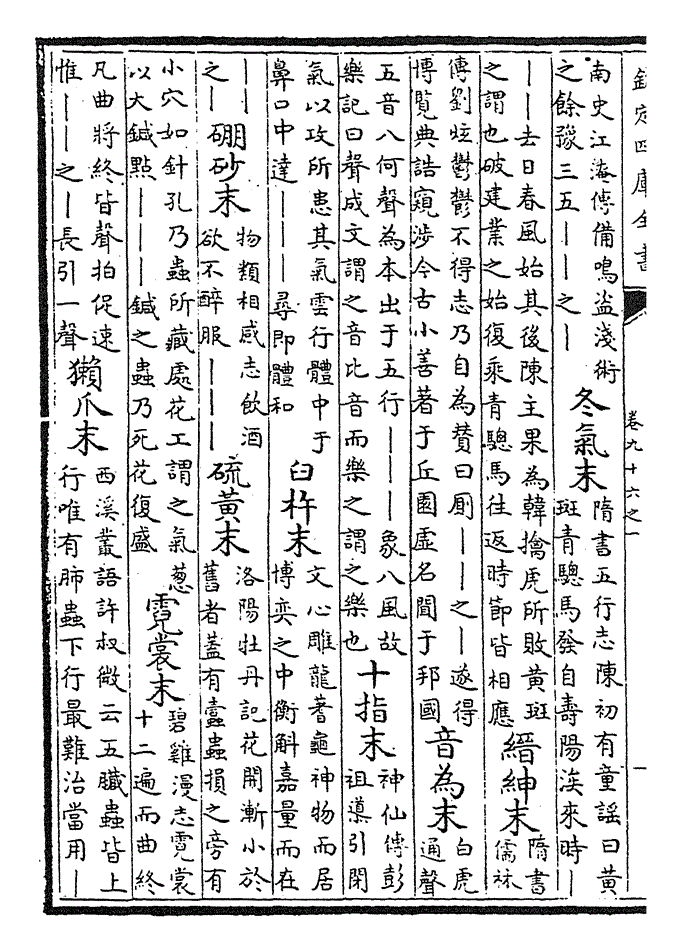 欽定四庫全書
卷九十六之一
一
南史江淹傳備鳴盜淺術
之餘豫三五｜｜之｜
冬氣末
隋書五行志陳初有童謡曰黄
斑青驄馬發自壽陽涘來時｜
｜｜去日春風始其後陳主果為韓擒虎所敗黄斑
之謂也破建業之始復乘青驄馬往返時節皆相應
縉紳末
隋書
儒林
傳劉炫鬱鬱不得志乃自為贊曰厠｜｜之｜遂得
博覽典誥窺涉今古小善著于丘園虛名聞于邦國
音為末
白虎
通聲
五音八何聲為本出于五行｜｜｜象八風故
樂記曰聲成文謂之音比音而樂之謂之樂也
十指末
神仙傳彭
祖導引閉
氣以攻所患其氣雲行體中于
鼻口中達｜｜｜尋即體和
臼杵末
文心雕龍蓍龜神物而居
博奕之中衡斛嘉量而在
｜｜
之｜
硼砂末
物類相感志飲酒
欲不醉服｜｜｜
硫黄末
洛陽牡丹記花開漸小於
舊者蓋有蠹蟲損之旁有
小穴如針孔乃蟲所藏處花工謂之氣葱
以大鍼點｜｜｜鍼之蟲乃死花復盛
霓裳末
碧雞漫志霓裳
十二遍而曲終
凡曲將終皆聲拍促速
惟｜｜之｜長引一聲
獺爪末
西溪叢語許叔微云五臟蟲皆上
行唯有肺蟲下行最難治當用｜